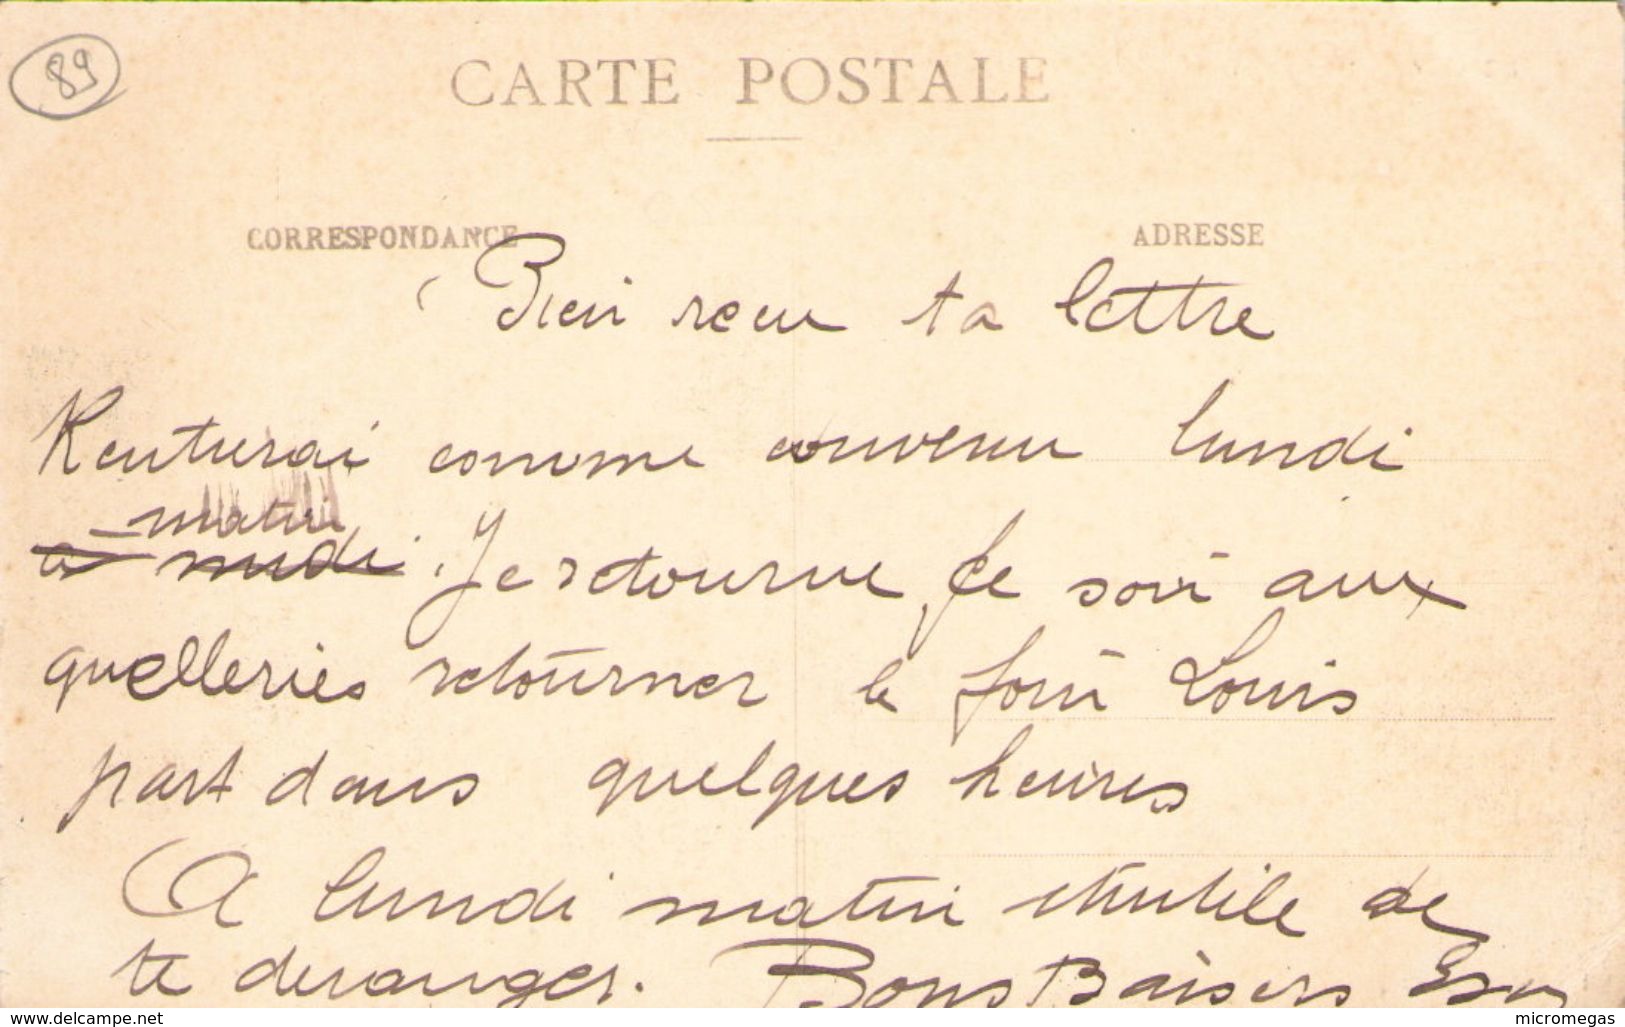 89
CARTE POSTALE
CORRESPONDANCE
ADRESSE
Bien recu ta lettre
Rentrerai comme convenu lundi
matin
a midi. Je retourne ce soir aux
quelleries retourner le foin Louis
part dans quelques heures
A lundi matin inutile de
te deranger. Bons Baisers
www.delcampe.net
micromegas